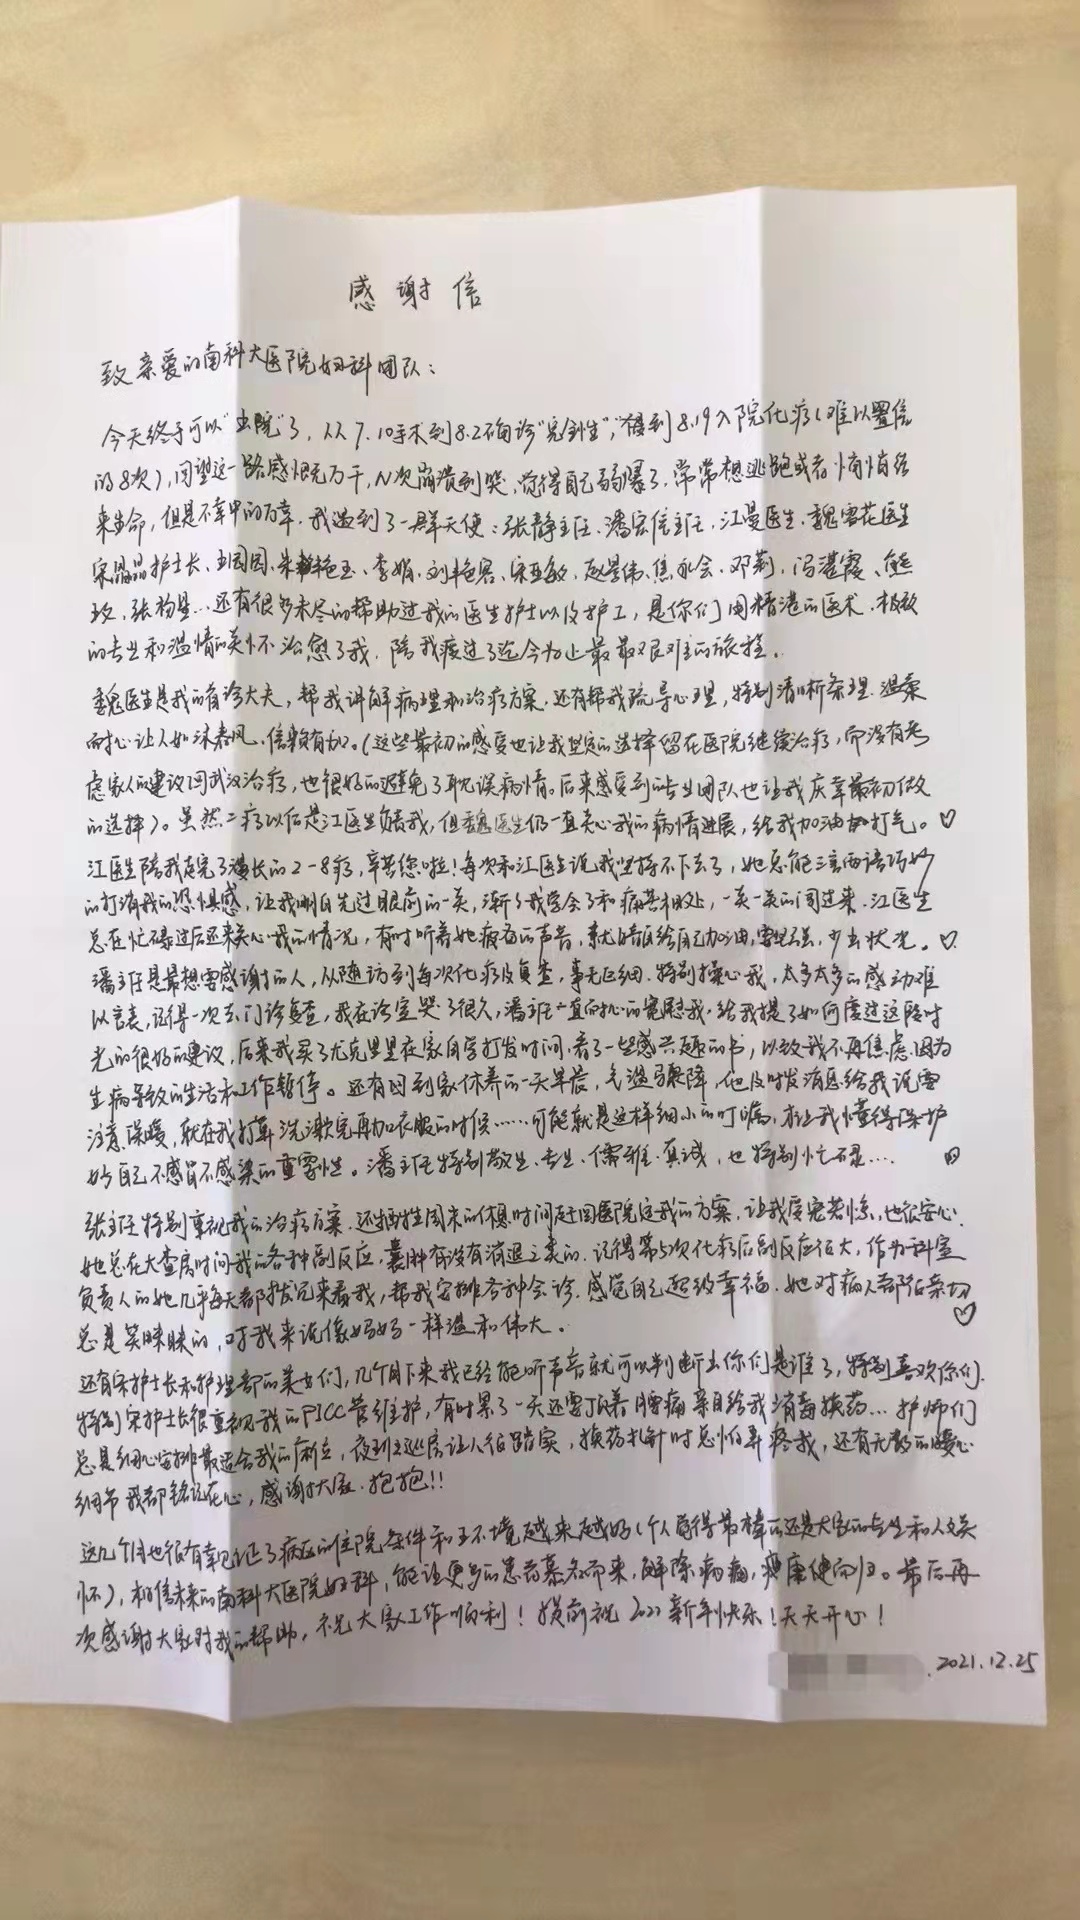 感谢信
致亲爱的南科大医院妇科团队：
今天终于可以“出院”了，从7.10手术到8.2确诊“完全性”，再到8.19入院化疗（难以置信
的8次），回望这一路感慨万千，N次崩溃到哭，觉得自己弱爆了，常常想逃跑或者悄悄结
束生命，但是不幸中的万幸，我遇到了一群天使：张静主任、潘宏信主任、江曼医生、魏雪花医生
宋晶晶护士长、王园园、朱艳玉、李娟、刘艳容、宋亚敏、赵景伟、焦永会、邓莉、冯湛霞、熊
玫、张杨星…还有很多未尽的帮助过我的医生护士以及护工，是你们用精湛的医术、极致
的专业和温情的关怀治愈了我，陪我渡过了迄今为止最最艰难的旅程。
魏医生是我的首诊大夫，帮我讲解病理和治疗方案，还有帮我疏导心理，特别清晰条理、温柔
耐心让人如沐春风、信赖有加。（这些最初的感受也让我坚定的选择留在医院继续治疗，而没有考
虑家人的建议回武汉治疗，也很好的避免了耽误病情。后来感受到的专业团队也让我庆幸最初做
的选择）。虽然二疗以后是江医生负责我，但魏医生仍一直关心我的病情进展，给我加油打气。♡
江医生陪我走完了漫长的2-8疗，辛苦您啦！每次和江医生说我坚持不下去了，她总能三言两语巧妙
的打消我的恐惧感，让我明白先过眼前的一关，渐渐我学会了和病苦相处，一关一关的闯过来。江医生
总在忙碌过后还来关心我的情况，有时听着她疲惫的声音，就暗自给自己加油，要坚强，少出状况。♡
潘主任是最想要感谢的人，从随访到每次化疗及复查，事无巨细、特别操心我，太多太多的感动难
以言表，记得一次去门诊复查，我在诊室哭了很久，潘主任一直耐心的宽慰我，给我提了如何度过这段时
光的很好的建议，后来我买了尤克里里在家自学打发时间，看了一些感兴趣的书，以致我不再焦虑因为
生病导致的生活和工作暂停。还有回到家休养的一天早晨，气温骤降，他及时发消息给我说要
注意保暖，就在我打算洗漱完再加衣服的时候……可能就是这样细小的叮嘱，才让我懂得保护
好自己不感冒不感染的重要性。潘主任特别敬业、专业、儒雅、真诚，也特别忙碌…
张主任特别重视我的治疗方案，还牺牲周末的休息时间赶回医院定我的方案，让我受宠若惊，也很安心。
她总在大查房时间我的各种副反应，囊肿有没有消退之类的，记得第5次化疗后副反应很大，作为科室
负责人的她几乎每天都抽空来看我，帮我安排各种会诊，感觉自己超级幸福，她对病人都很亲切
总是笑眯眯的，对我来说像妈妈一样温和伟大。♡
还有宋护士长和护理部的美女们，几个月下来我已经能听声音就可以判断出你们是谁了，特别喜欢你们，
特别宋护士长很重视我的PICC管维护，有时累了一天还要顶着腰痛亲自给我消毒换药…护师们
总是细心安排最适合我的床位，夜班巡房让人很踏实，换药扎针时总怕弄疼我，还有无数的暖心
细节我都铭记在心，感谢大家、抱抱！！
这几个月也很有幸见证了病区的住院条件和环境越来越好（个人觉得最棒的还是大家的专业和人文关
怀），相信未来的南科大医院妇科，能让更多的患者慕名而来，解除病痛，健康而归。最后再
次感谢大家对我的帮助，祝大家工作顺利！提前祝2022新年快乐！天天开心！
2021.12.25